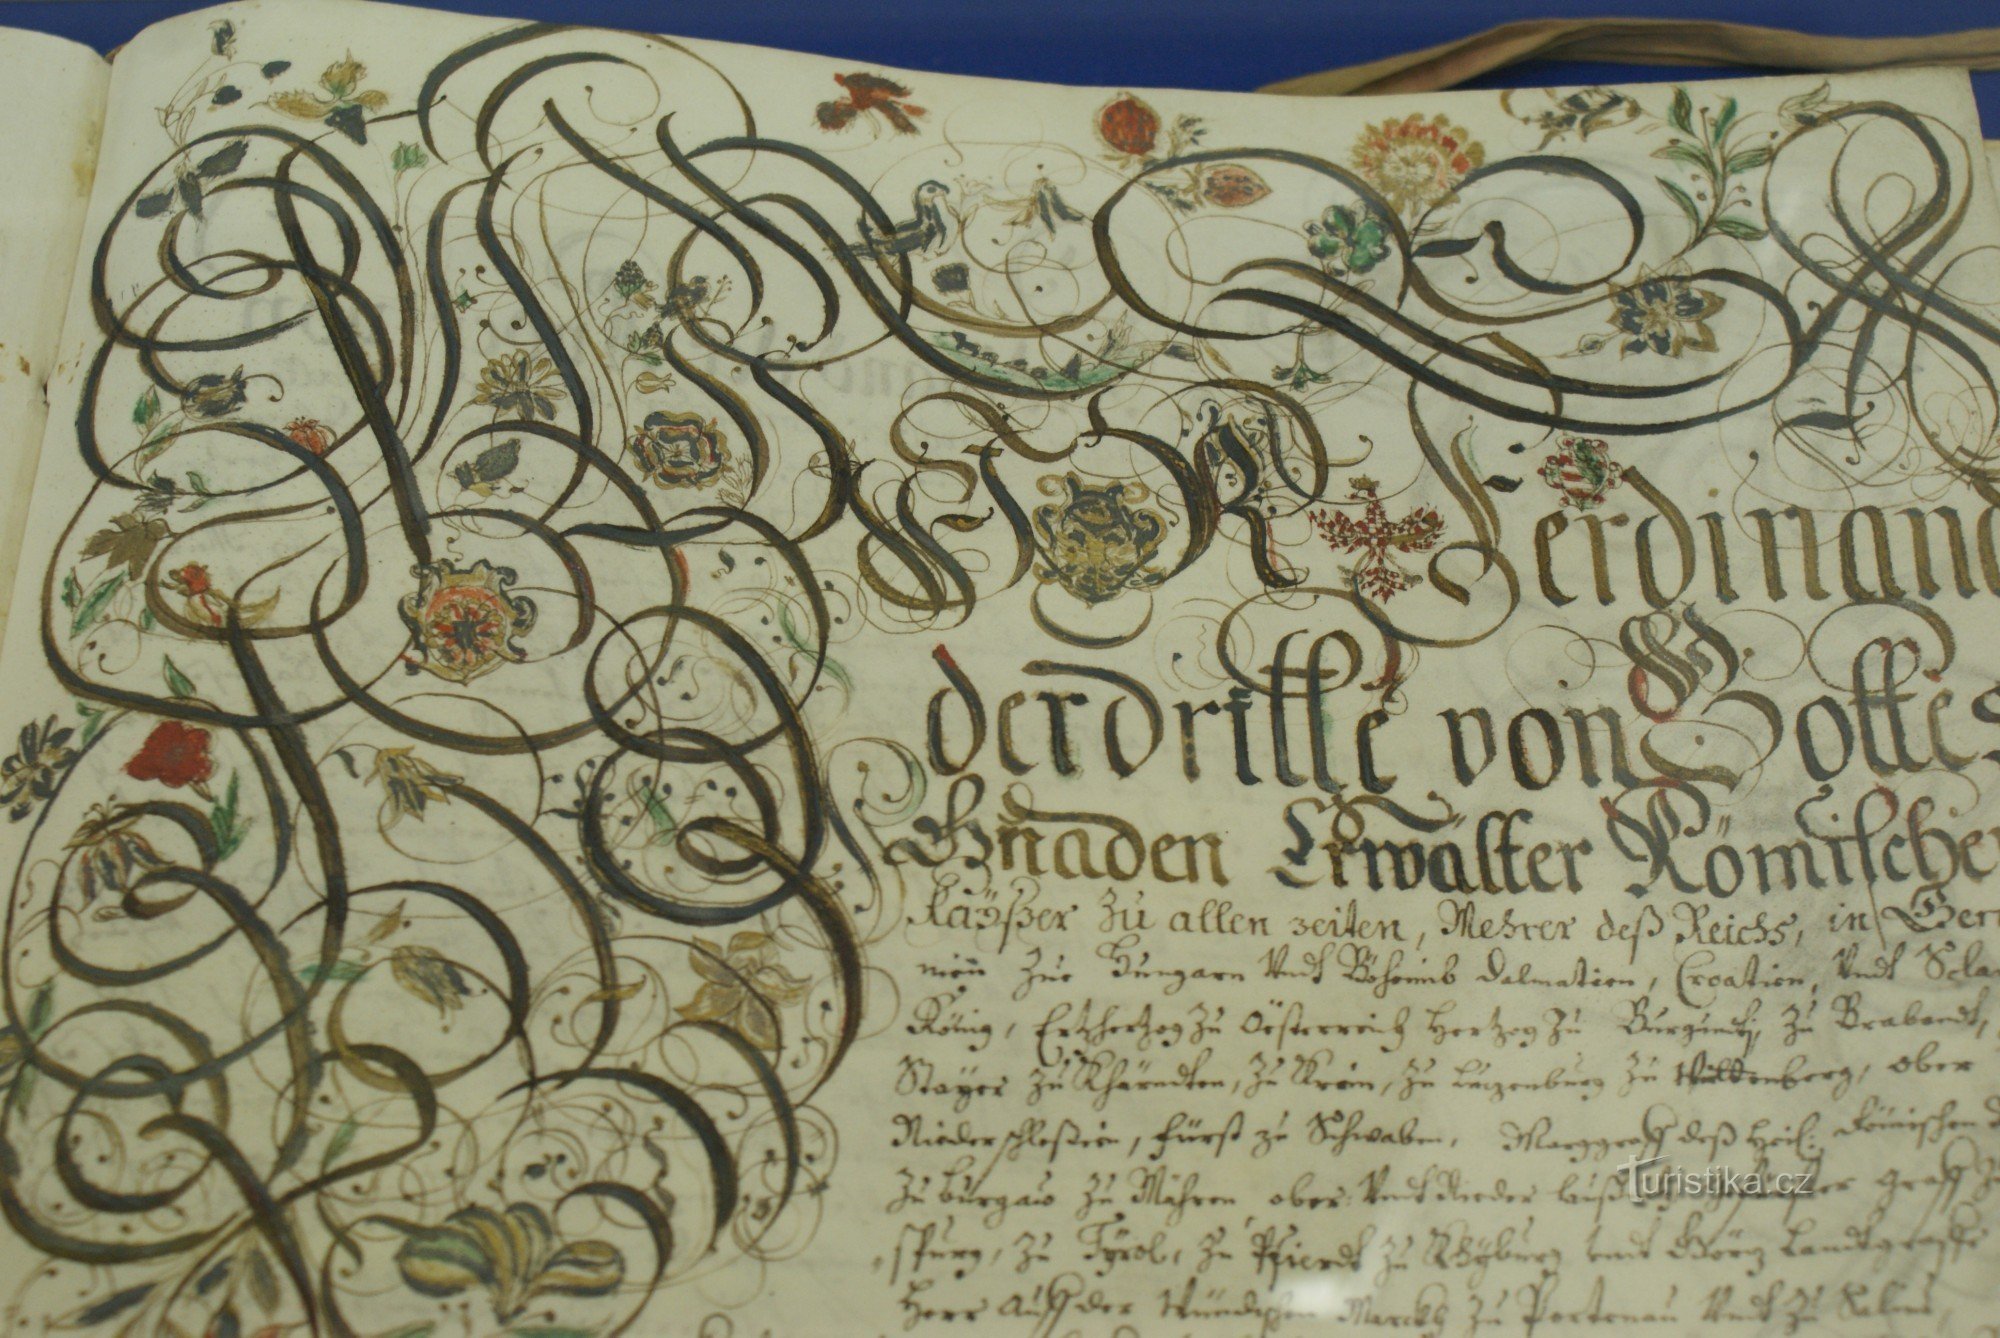 WIR Ferdinand
der dritte von Gottes
Gnaden Erwälter Römischer
Kaÿßer zu allen zeiten, Mehrer deß Reichs, in Ger
nien zue Hungarn Vndt Böheimb Dalmatien, Croatien, Vndt Scla
König, Ertzhertzog zu Oesterreich Hertzog zu Burgundt, zu Brabandt,
Steyer zu Khärndten, zu Krain, zu Lützenburg zu Württenberg, ober
Niederschleßien, Fürst zu Schwaben, Marggraff deß Heil: Römischen
zu Burgaw zu Mähren ober: Vndt Nieder Lauß Graff zu
spurg, zu Tyrol, zu Pfierdt zu Khyburg Vndt Görz Landtgraffe
Herr auff der Windischen Marckh zu Portenau Vndt zu Salins,
Turistika.cz